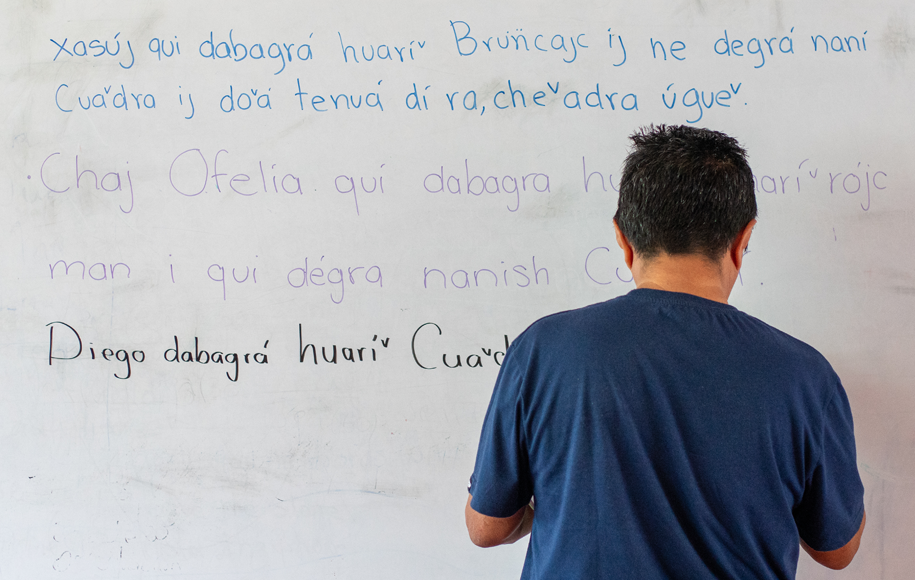 xasúj qui dabagrá huaríᵛ Brun̈cajc ij ne degrá naní
Cuaᵛdra ij doᵛá tenuá dí ra, cheᵛadra úgueᵛ.
· Chaj Ofelia. qui dabagra ríᵛ rójc
man i qui dégra nanish
Diego dabagrá huaríᵛ